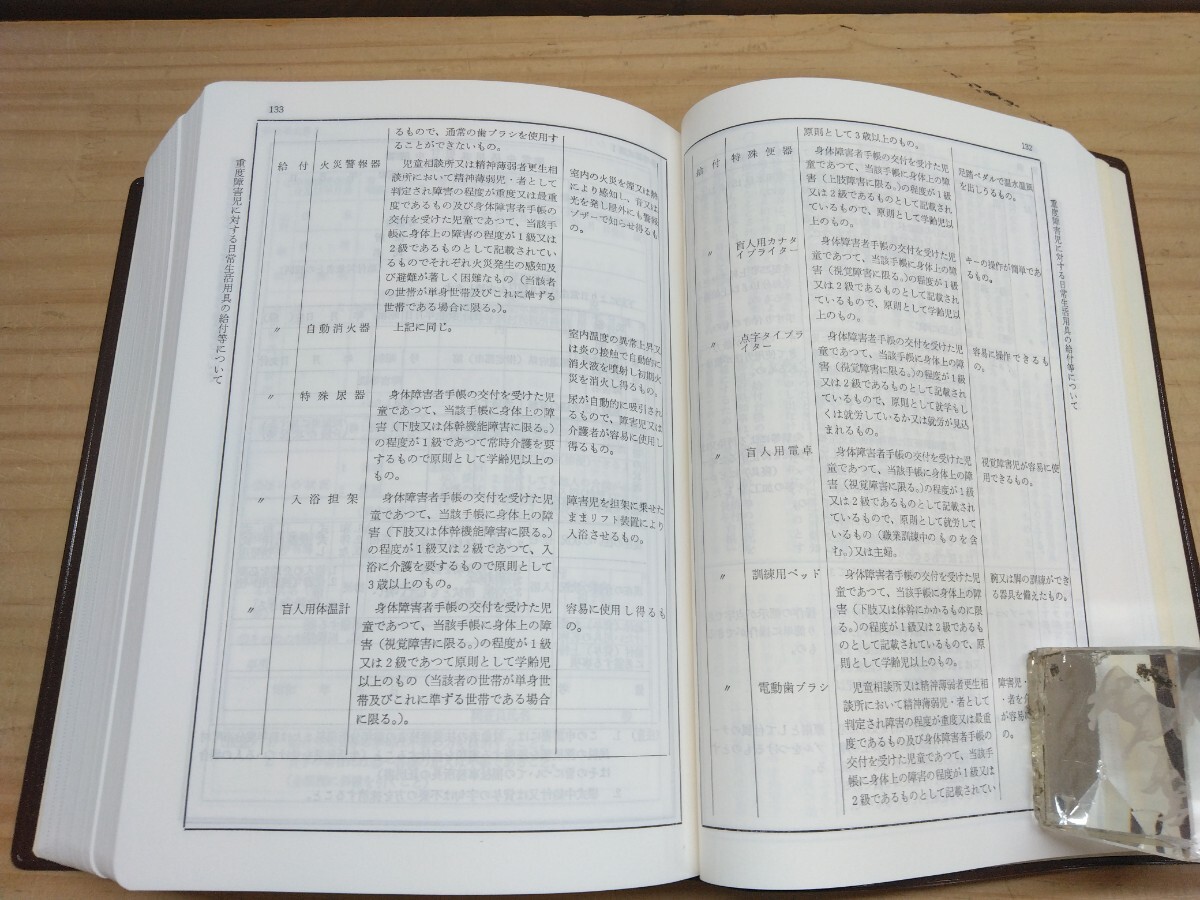 132
重度障害児に対する日常生活用具の給付等について
原則として3歳以上のもの。
給付
特殊便器
身体障害者手帳の交付を受けた児
童であつて、当該手帳に身体上の障
害（上肢障害に限る。）の程度が1級
又は2級であるものとして記載され
ているもので、原則として学齢児以
上のもの。
足踏ペダルで温水温風
を出しうるもの。
〃
盲人用カナタ
イプライター
身体障害者手帳の交付を受けた児
童であつて、当該手帳に身体上の障
害（視覚障害に限る。）の程度が1級
又は2級であるものとして記載され
ているもので、原則として学齢児以
上のもの。
キーの操作が簡単であ
るもの。
〃
点字タイプラ
イター
身体障害者手帳の交付を受けた児
童であつて、当該手帳に身体上の障
害（視覚障害に限る。）の程度が1級
又は2級であるものとして記載され
ているもので、原則として就学もし
くは就労しているか又は就労が見込
まれるもの。
容易に操作できるも
の。
〃
盲人用電卓
身体障害者手帳の交付を受けた児
童であつて、当該手帳に身体上の障
害（視覚障害に限る。）の程度が1級
又は2級であるものとして記載され
ているもので、原則として就労して
いるもの（職業訓練中のものを含
む。）又は主婦。
視覚障害児が容易に使
用できるもの。
〃
訓練用ベッド
身体障害者手帳の交付を受けた児
童であつて、当該手帳に身体上の障
害（下肢又は体幹にかかるものに限
る。）の程度が1級又は2級であるも
のとして記載されているもので、原
則として学齢児以上のもの。
腕又は脚の訓練ができ
る器具を備えたもの。
〃
電動歯ブラシ
児童相談所又は精神薄弱者更生相
談所において精神薄弱児・者として
判定され障害の程度が重度又は最重
度であるもの及び身体障害者手帳の
交付を受けた児童であつて、当該手
帳に身体上の障害の程度が1級又は
2級であるものとして記載されてい
障害児・
・者を介
が容易に
の。
133
重度障害児に対する日常生活用具の給付等について
るもので、通常の歯ブラシを使用す
ることができないもの。
給付
火災警報器
児童相談所又は精神薄弱者更生相
談所において精神薄弱児・者として
判定され障害の程度が重度又は最重
度であるもの及び身体障害者手帳の
交付を受けた児童であつて、当該手
帳に身体上の障害の程度が1級又は
2級であるものとして記載されてい
るものでそれぞれ火災発生の感知及
び避難が著しく困難なもの（当該者
の世帯が単身世帯及びこれに準ずる
世帯である場合に限る。）。
室内の火災を煙又は熱
により感知し、音又は
光を発し屋外にも警報
ブザーで知らせ得るも
の。
〃
自動消火器
上記に同じ。
室内温度の異常上昇又
は炎の接触で自動的に
消火液を噴射し初期火
災を消火し得るもの。
〃
特殊尿器
身体障害者手帳の交付を受けた児
童であつて、当該手帳に身体上の障
害（下肢又は体幹機能障害に限る。）
の程度が1級であつて常時介護を要
するもので原則として学齢児以上の
もの。
尿が自動的に吸引され
るもので、障害児又は
介護者が容易に使用し
得るもの。
〃
入浴担架
身体障害者手帳の交付を受けた児
童であつて、当該手帳に身体上の障
害（下肢又は体幹機能障害に限る。）
の程度が1級又は2級であつて、入
浴に介護を要するもので原則として
3歳以上のもの。
障害児を担架に乗せた
ままリフト装置により
入浴させるもの。
〃
盲人用体温計
身体障害者手帳の交付を受けた児
童であつて、当該手帳に身体上の障
害（視覚障害に限る。）の程度が1級
又は2級であつて原則として学齢児
以上のもの（当該者の世帯が単身世
帯及びこれに準ずる世帯である場合
に限る。）。
容易に使用し得るも
の。